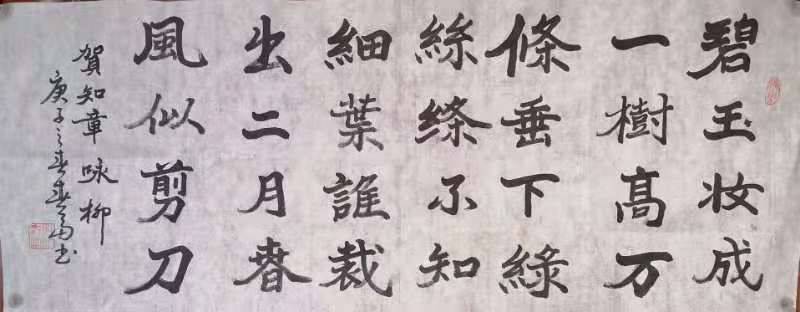 碧玉妆成
一樹髙万
條垂下綠
絲絛不知
細葉誰裁
出二月春
風似剪刀
賀知章咏柳
庚子之春书